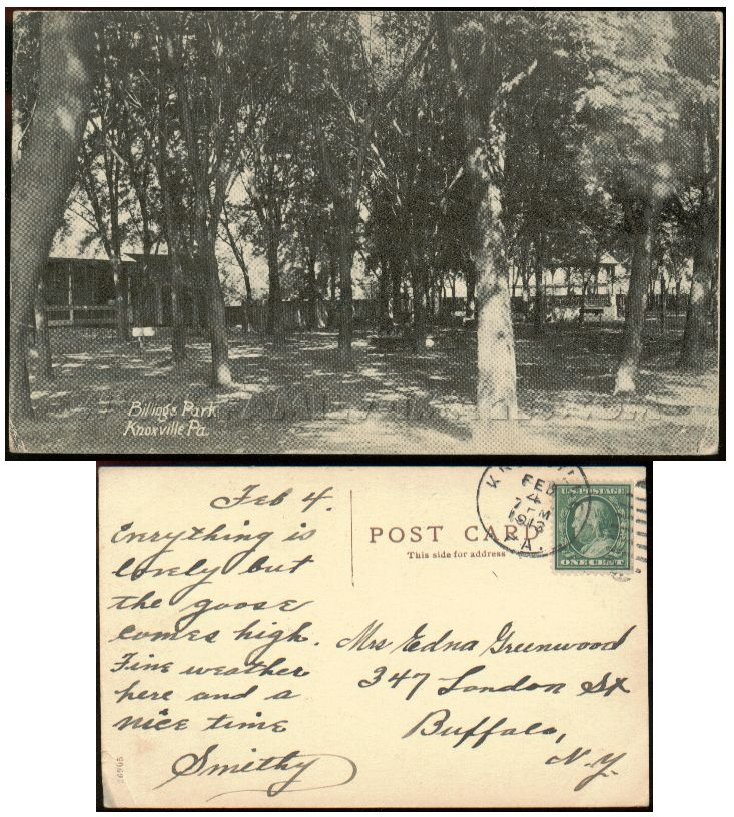 Billings Park
Knoxville Pa.
Feb 4.
Everything is
lovely but
the goose
comes high.
Fine weather
here and a
nice time
Smithy
POST CARD
This side for address
FEB
4
1913
PA.
U.S. POSTAGE
ONE CENT
Mrs Edna Greenwood
347 London St
Buffalo,
N.Y.